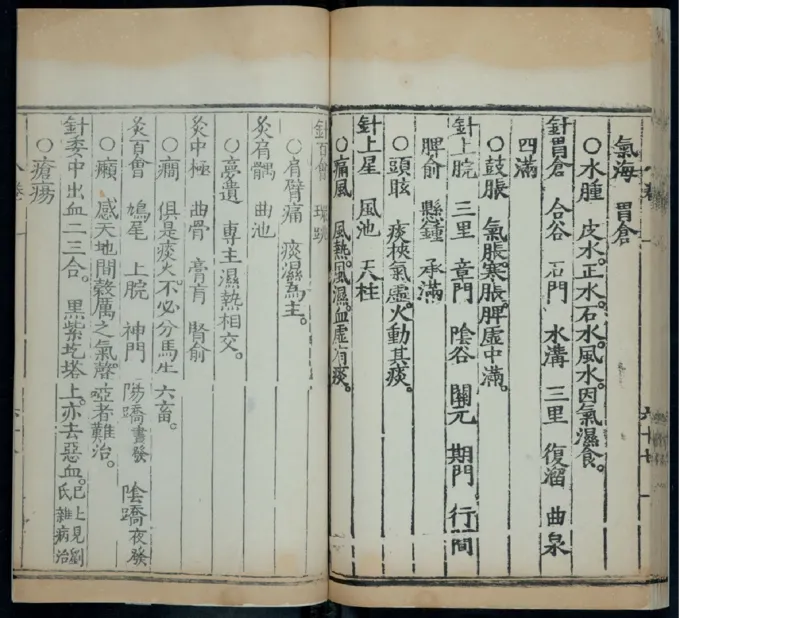 氣海 胃倉
○水腫 皮水。正水。石水。風水。因氣濕食。
針胃倉 合谷 石門 水溝 三里 復溜 曲泉
四滿
○鼓脹 氣脹。寒脹。脾虛中滿。
針上脘 三里 章門 陰谷 關元 期門 行間
脾俞 懸鍾 承滿
○頭眩 痰挾氣虛。火動其痰。
針上星 風池 天柱
○痛風 風熱。風濕。血虛有痰。
針百會 環跳
○肩臂痛 痰濕爲主。
灸肩髃 曲池
○夢遺 專主濕熱相交。
灸中極 曲骨 膏肓 腎俞
○癇 俱是痰火。不必分馬牛六畜。
灸百會 鳩尾 上脘 神門 陽蹻晝發 陰蹻夜發
○癩 感天地間殺厲之氣。聲啞者難治。
針委中出血二三合。黑紫圪塔上。亦去惡血。已上見劉氏雜病治
○瘡瘍